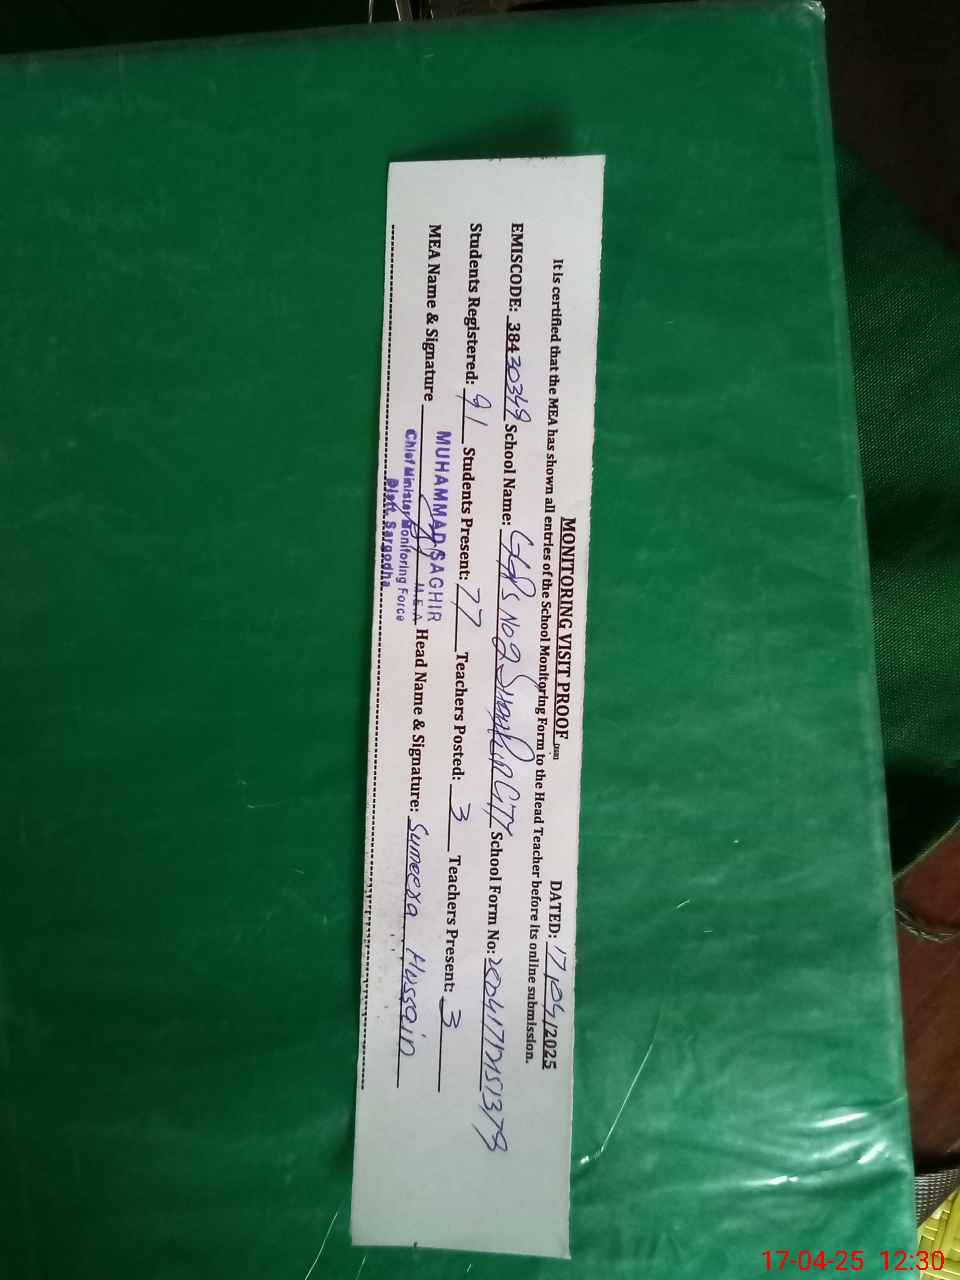 MONITORING VISIT PROOF DATED: 17/04/2025
It is certified that the MEA has shown all entries of the School Monitoring Form to the Head Teacher before its online submission.
EMISCODE: 38430349 School Name: GGPS No 2 CITY School Form No:
Students Registered: 91 Students Present: 77 Teachers Posted: 3 Teachers Present: 3
MEA Name & Signature Head Name & Signature: Sumeera Hussain
MUHAMMAD SAGHIR
M.E.A
Chief Minister Monitoring Force
Distt. Sargodha
17-04-25 12:30